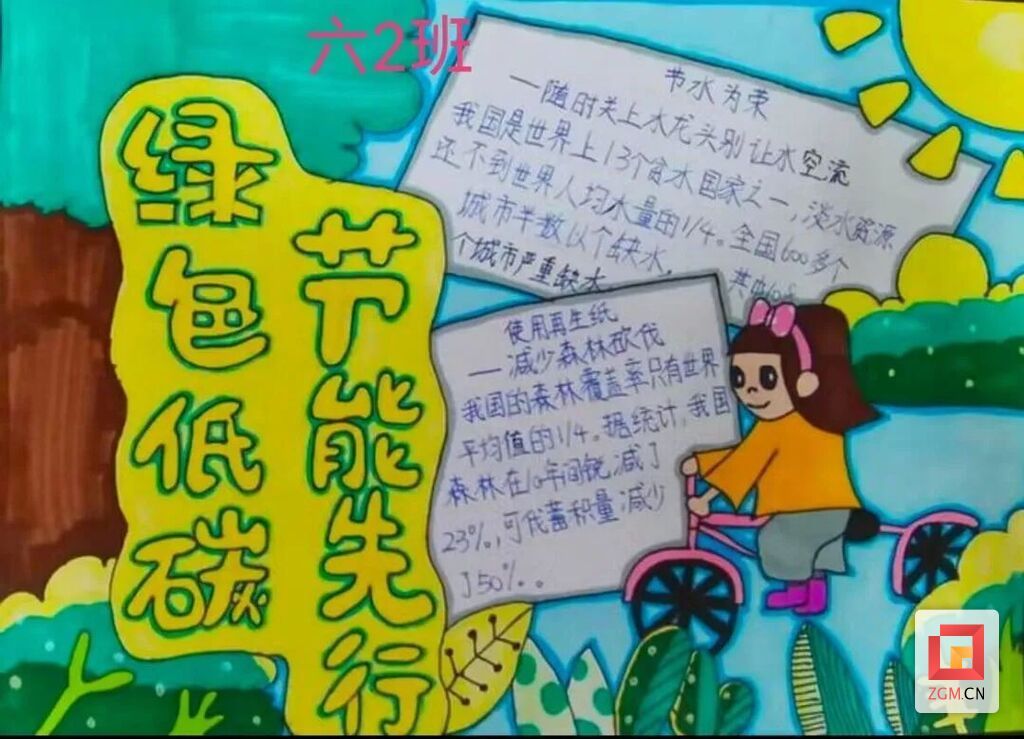 六2班
绿色低碳
节能先行
节水为荣
—随时关上水龙头别让水空流
我国是世界上13个贫水国家之一,淡水资源
还不到世界人均水量的1/4。全国600多个
城市半数以个缺水,其中108
个城市严重缺水
使用再生纸
—减少森林砍伐
我国的森林覆盖率只有世界
平均值的1/4。据统计,我国
森林在10年间锐减了
23%,可伐蓄积量减少
了50%。
ZGM.CN